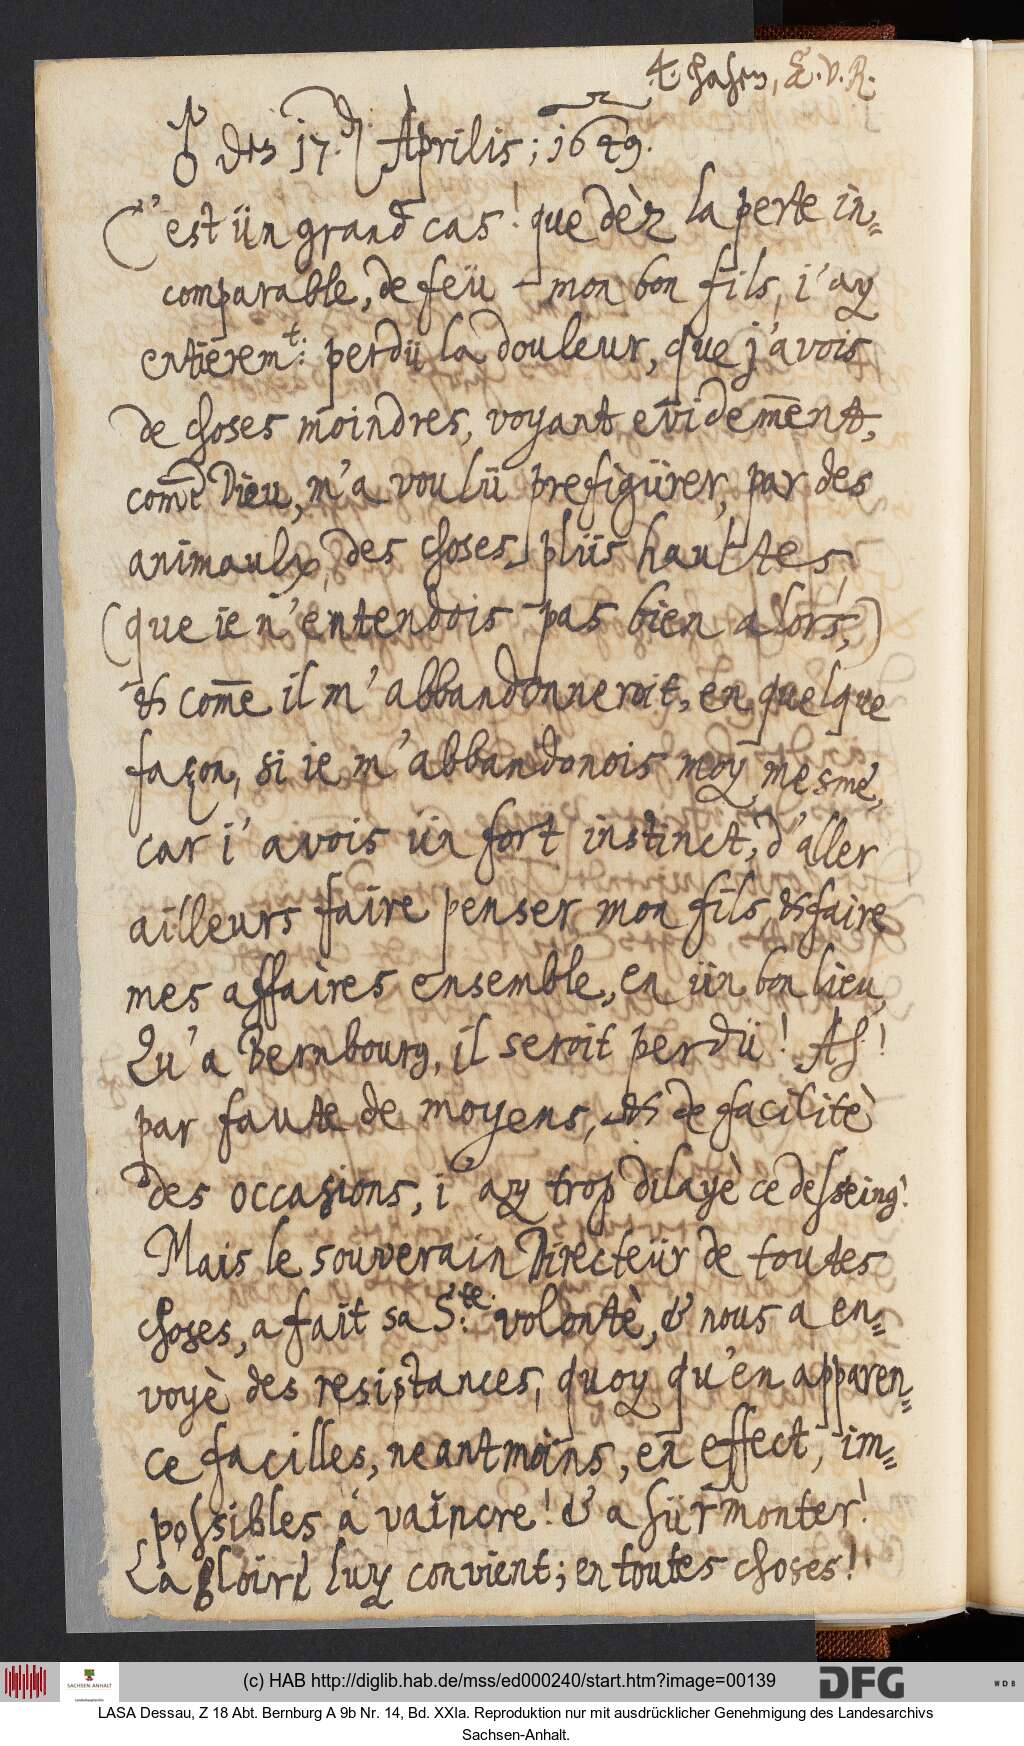 4. hasen, E. v. R.
♂ den 17. Aprilis; 1649.
C'est ün grand cas! que dèz la perte in=
comparable, de feü mon bon fils, i'ay
entierem.t: perdü la douleur, que j'avois
de choses moindres, voyant evidem̄ent,
com̄e Dieu, m'a voulü prefigürer, par des
animaulx, des choses plüs haultes,
(que ie n'entendois pas bien alors,)
& com̄e il m'abbandonneroit, en quelque
façon, si ie m'abbandonois moy mesme,
car i'avois ün fort instinct, d'aller
ailleurs faire penser mon fils, & faire
mes affaires ensemble, en ün bon lieu,
Qu'a Bernbourg, il seroit perdü! Ah!
par faute de moyens, & de facilitè
des occasions, i'ay trop dilayè ce desseing!
Mais le souverain Directeür de toutes
choses, a fait sa S.te: volontè, & nous a en=
voyè des resistances, quoy qu'en apparen=
ce facilles, neantmoins, en effect, im=
possibles a vaincre! & a sürmonter!
La gloire luy convient; en toutes choses!
(c) HAB http://diglib.hab.de/mss/ed000240/start.htm?image=00139
SACHSEN-ANHALT
DFG
WDB
LASA Dessau, Z 18 Abt. Bernburg A 9b Nr. 14, Bd. XXIa. Reproduktion nur mit ausdrücklicher Genehmigung des Landesarchivs
Sachsen-Anhalt.